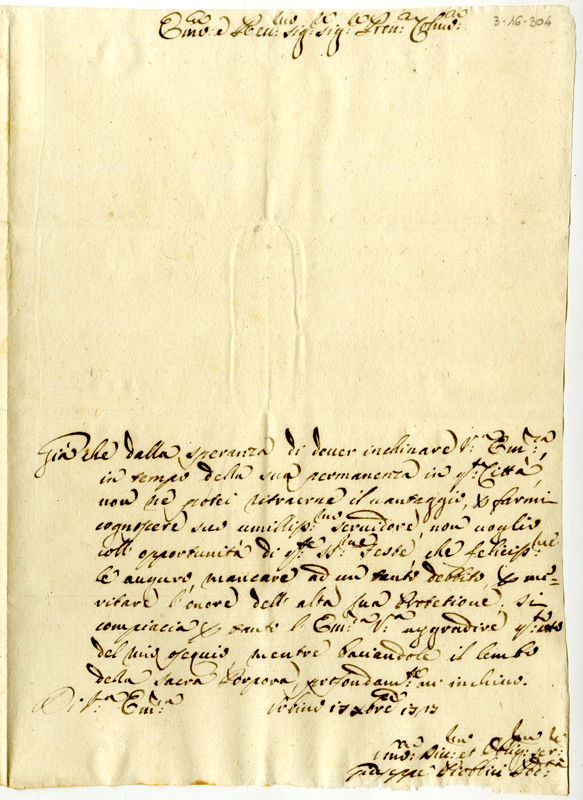 3-16-304
Em.mo e Reu.mo Sig.r Sig.r Pron. Col.mo
Già che dalla speranza di douer inchinare V.ra Em.za,
in tempo della sua permanenza in q.ta Città,
non ne potei ritraerne il uantaggio, p farmi
cognoscere suo umiliss.mo seruidore, non uoglio
coll' opportunità di q.te SS.me Feste, che feliciss.me
le auguro, mancare ad un tanto debito p me-
ritare l'onore dell' alta sua Protetione, si
compiacia p tanto l' Em.za V.ra aggradire q.to atto
del mio osequio, mentre baciandole il lembo
della sacra Porpora, profondam.te mi inchino.
Di V.ra Em.za Urbino 17 xbre 1713
Um.mo Diu.mo et Oblig.mo ser.re
Giuseppe